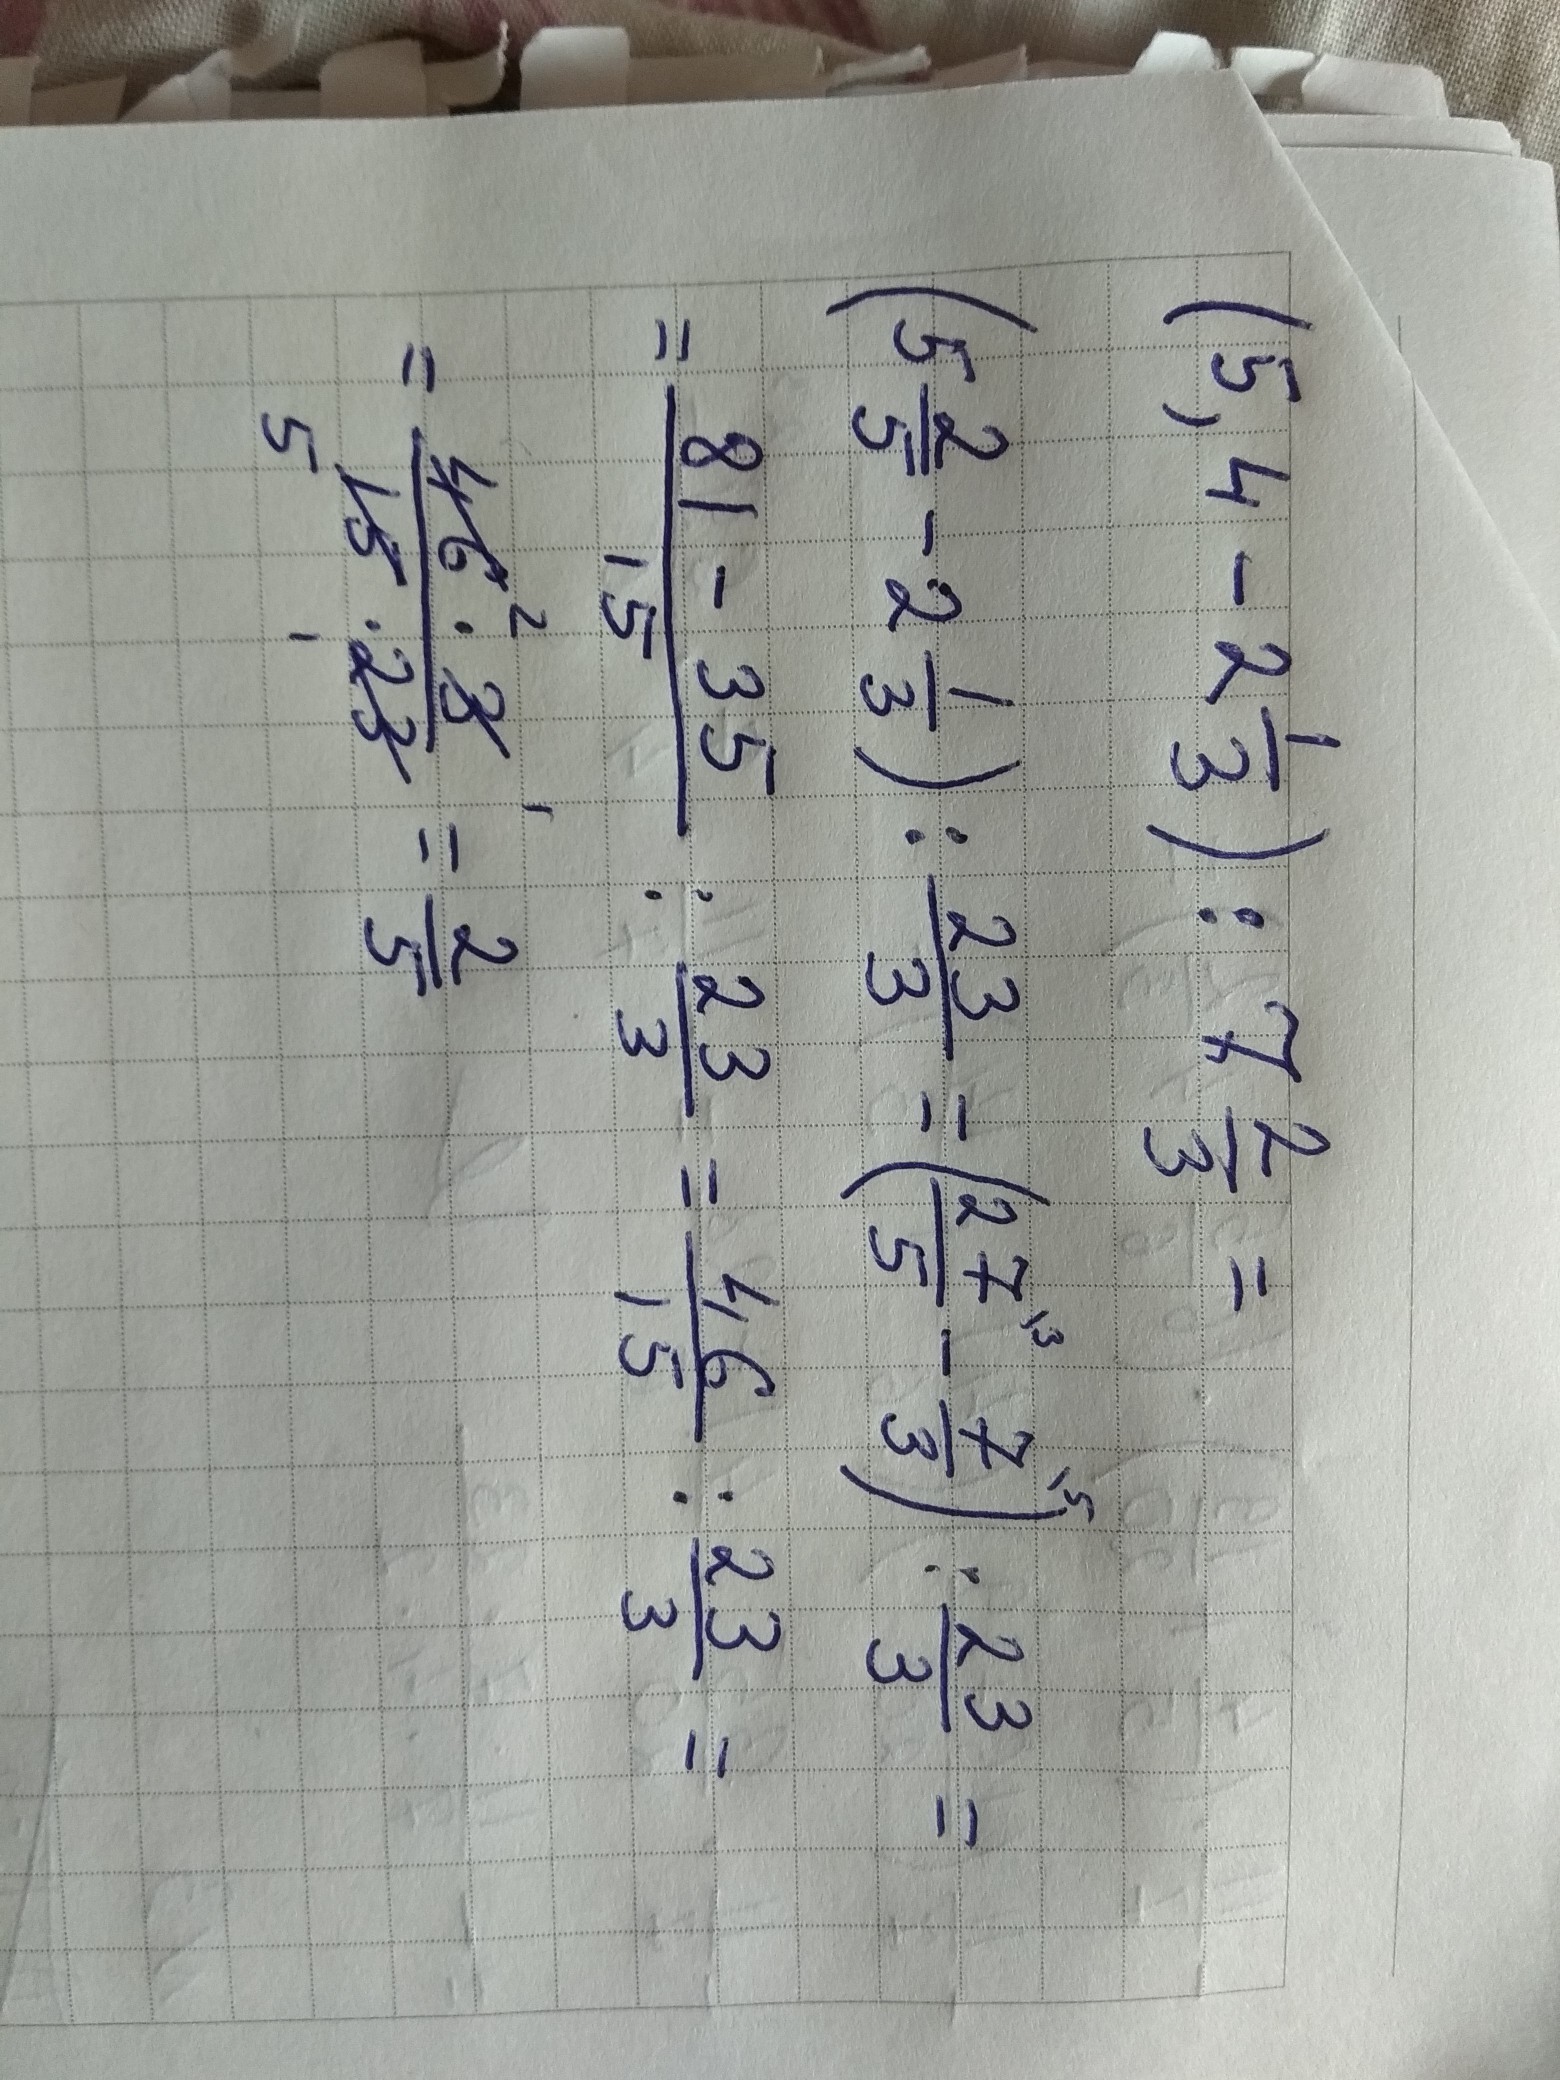 (5,4 - 2 1/3) : 7 2/3 =
(5 2/5 - 2 1/3) : 23/3 = (27/5 ^13 - 7/3 ^15) : 23/3 =
= 81 - 35/15 : 23/3 = 46/15 : 23/3 =
= 46 ^2 · 3 ^1/15 5 · 23 1 = 2/5